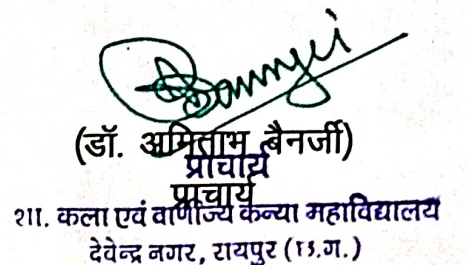 Banerji
(डॉ. अमिताभ बैनर्जी)
प्राचार्य
प्राचार्य
शा. कला एवं वाणिज्य कन्या महाविद्यालय
देवेन्द्र नगर, रायपुर (छ.ग.)